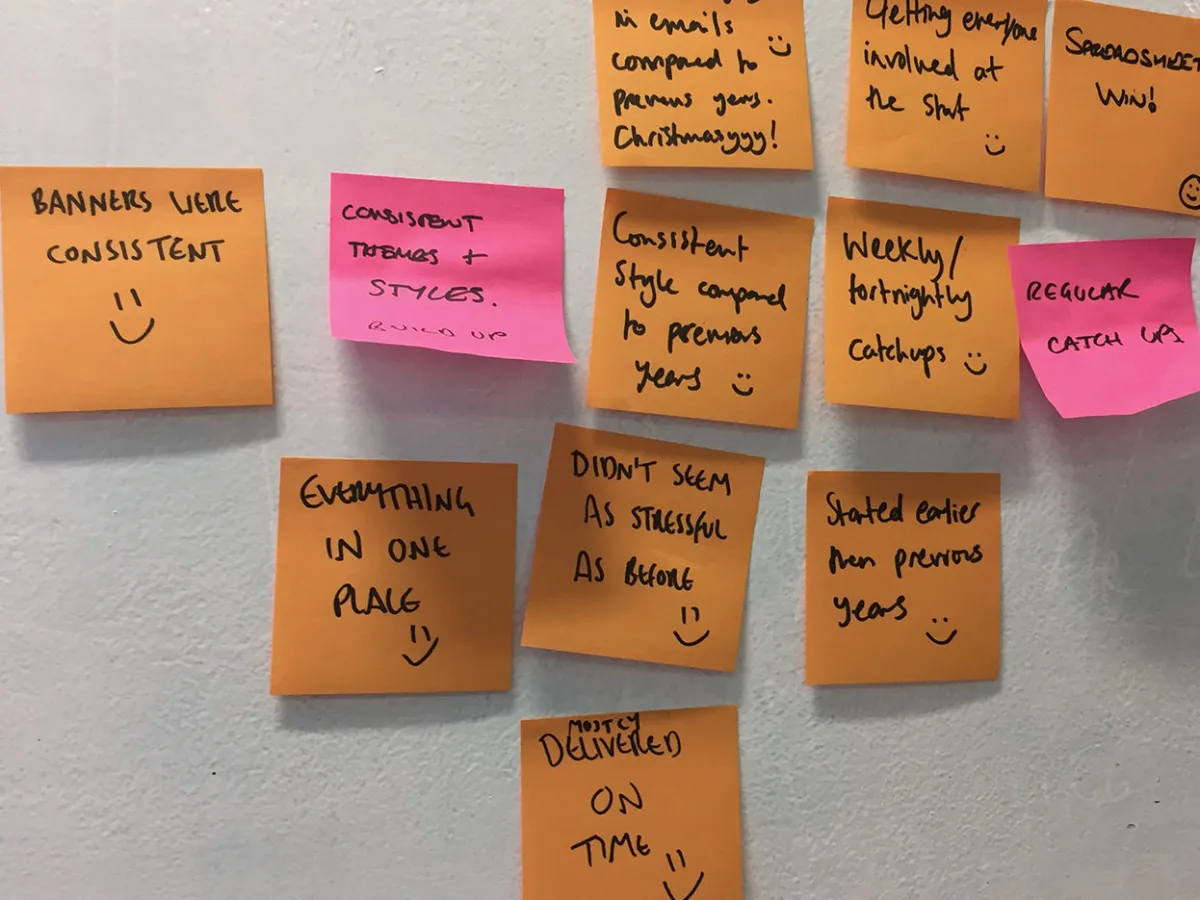 in emails
compared to
previous years.
Christmasyyy!
Getting everyone
involved at
the start
SPREADSHEET
WIN!
BANNERS WERE
CONSISTENT
CONSISTENT
THEMES +
STYLES.
BUILD UP
Consistent
Style compared
to previous
years
Weekly/
fortnightly
Catchups
REGULAR
CATCH UPS
EVERYTHING
IN ONE
PLACE
DIDN'T SEEM
AS STRESSFUL
AS BEFORE
Started earlier
then previous
years
MOSTLY
DELIVERED
ON
TIME